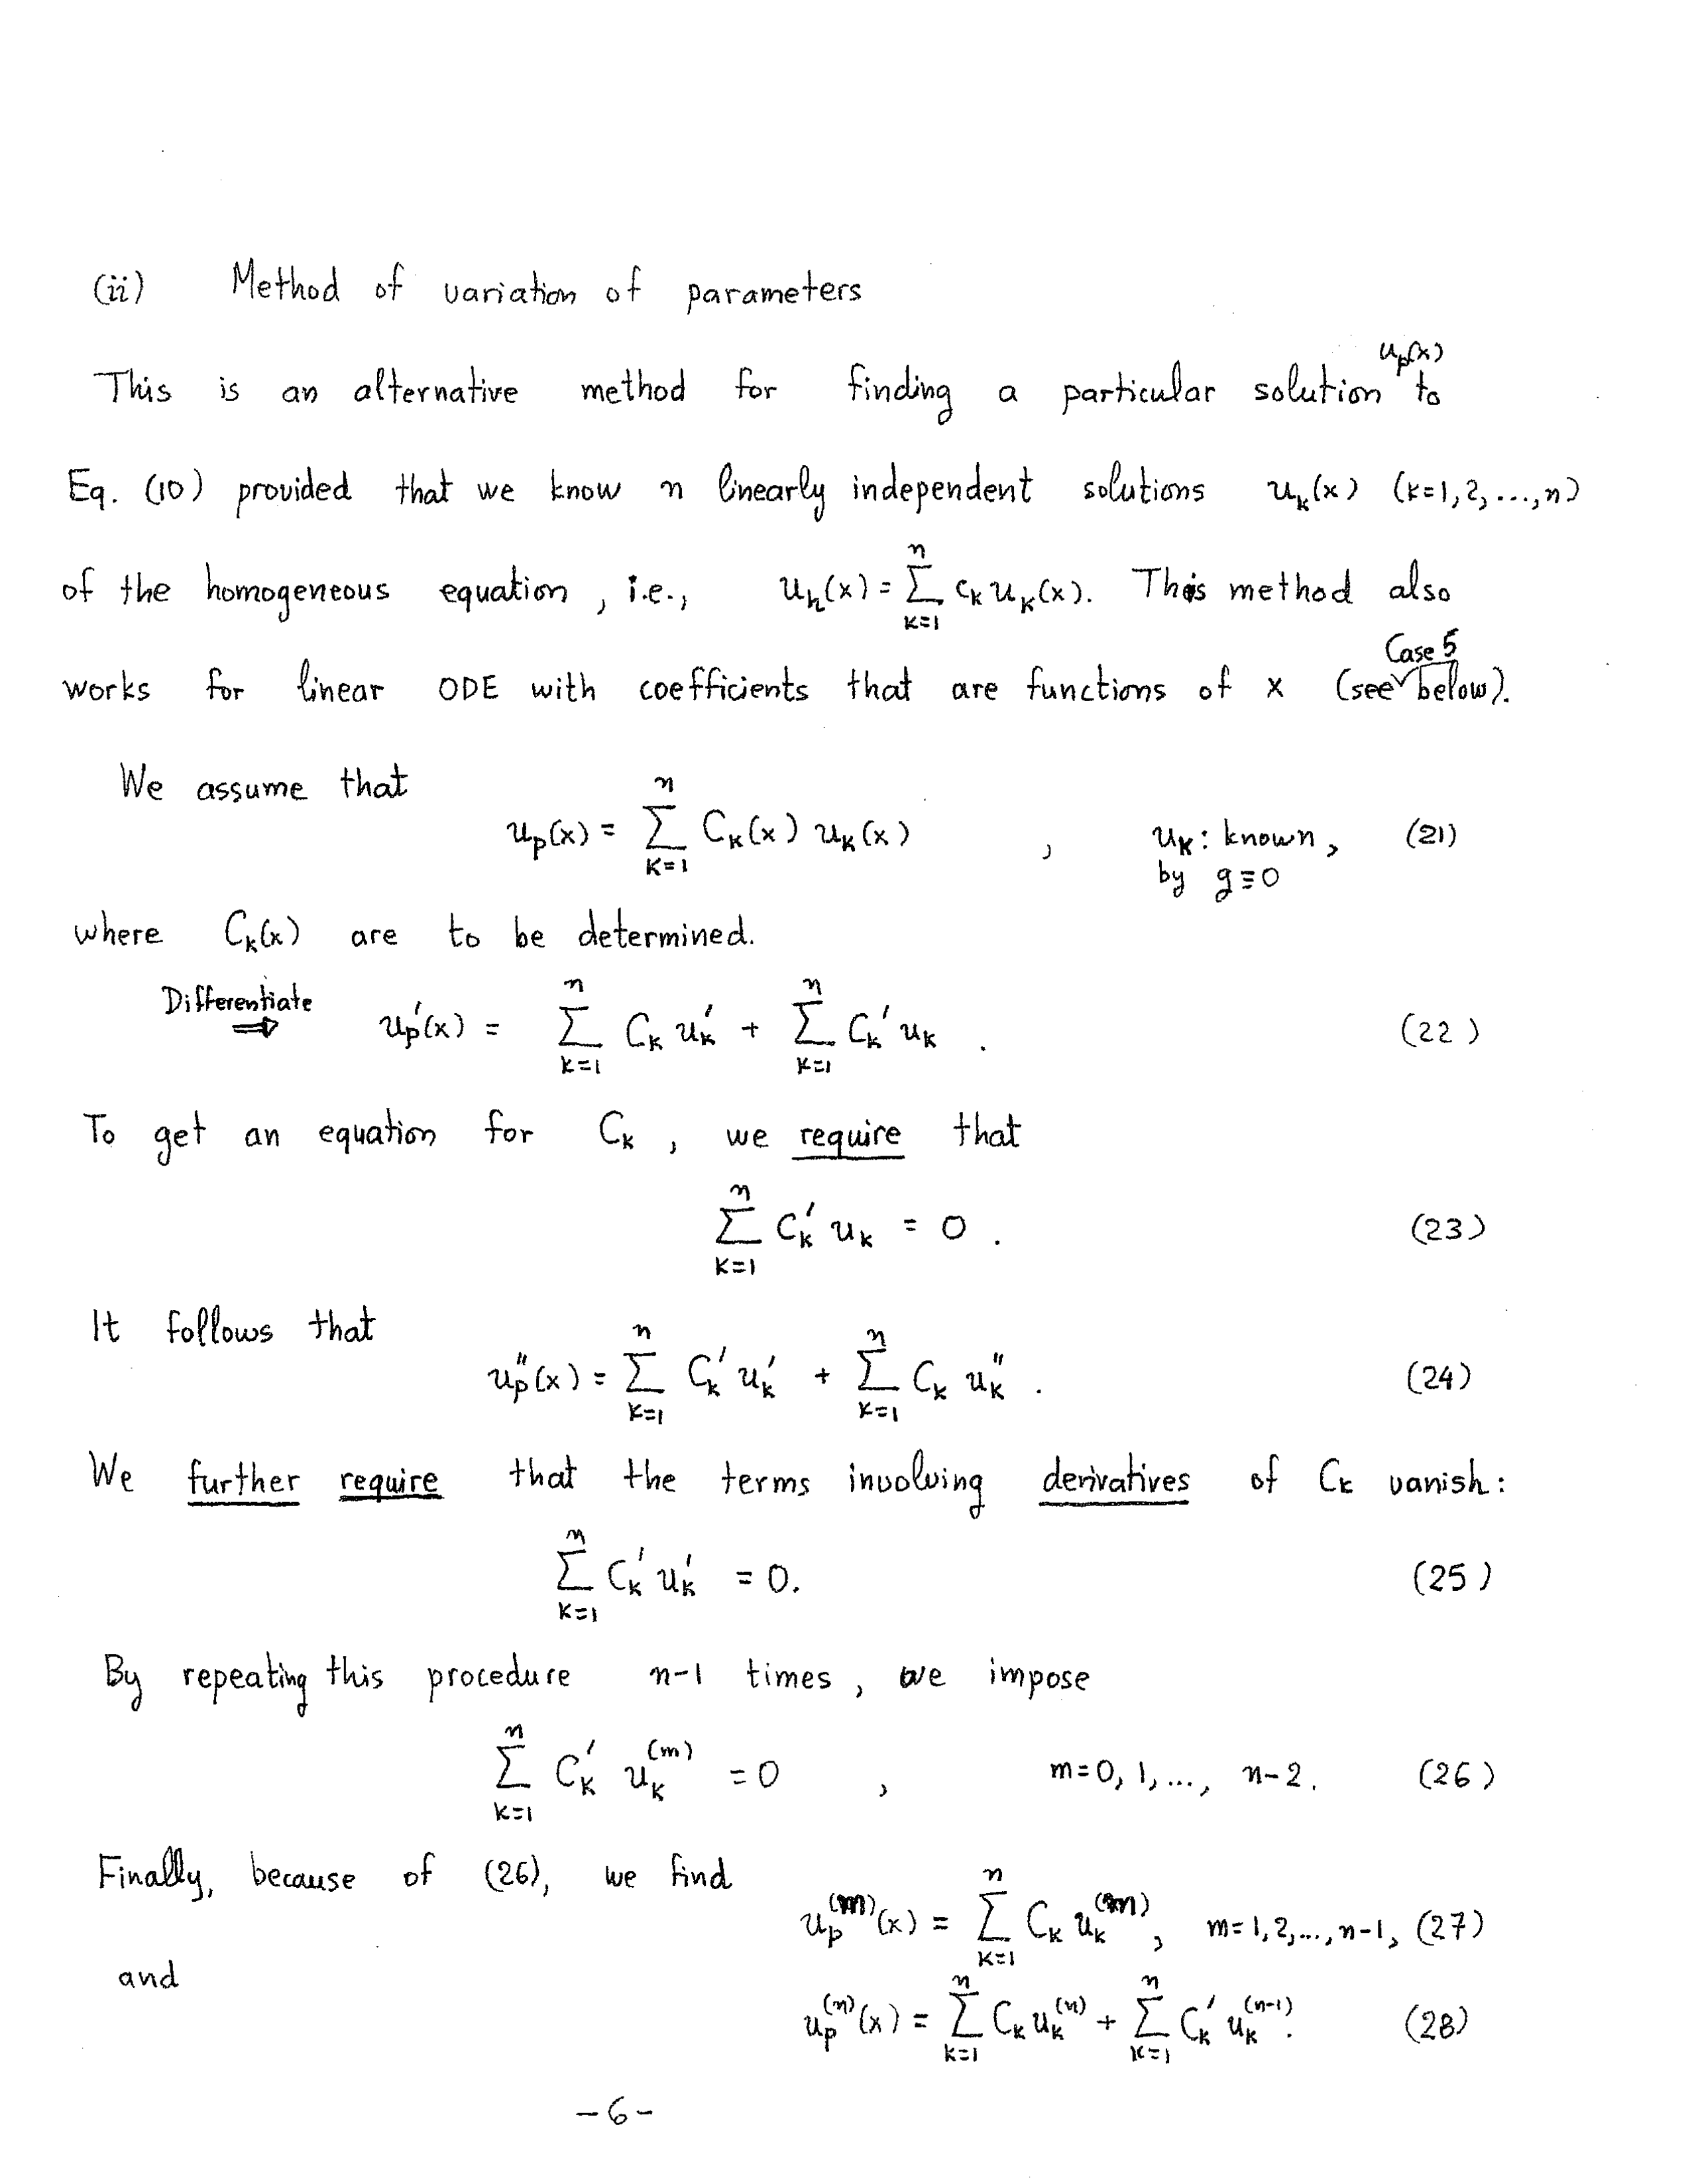 (ii) Method of variation of parameters
u_p(x)
This is an alternative method for finding a particular solution to
Eq. (10) provided that we know n linearly independent solutions u_k(x) (k=1,2,...,n)
of the homogeneous equation, i.e., u_h(x) = ∑_{k=1}^{n} c_k u_k(x). This method also
Case 5
works for linear ODE with coefficients that are functions of x (see below).
We assume that
u_p(x) = ∑_{k=1}^{n} C_k(x) u_k(x) , u_k: known, (21)
by g≡0
where C_k(x) are to be determined.
Differentiate ⇒ u_p'(x) = ∑_{k=1}^{n} C_k u_k' + ∑_{k=1}^{n} C_k' u_k . (22)
To get an equation for C_k, we require that
∑_{k=1}^{n} C_k' u_k = 0 . (23)
It follows that
u_p''(x) = ∑_{k=1}^{n} C_k' u_k' + ∑_{k=1}^{n} C_k u_k'' . (24)
We further require that the terms involving derivatives of C_k vanish:
∑_{k=1}^{n} C_k' u_k' = 0. (25)
By repeating this procedure n-1 times, we impose
∑_{k=1}^{n} C_k' u_k^{(m)} = 0 , m=0, 1,..., n-2. (26)
Finally, because of (26), we find
u_p^{(m)}(x) = ∑_{k=1}^{n} C_k u_k^{(m)}, m=1,2,...,n-1, (27)
and
u_p^{(n)}(x) = ∑_{k=1}^{n} C_k u_k^{(n)} + ∑_{k=1}^{n} C_k' u_k^{(n-1)}. (28)
-6-